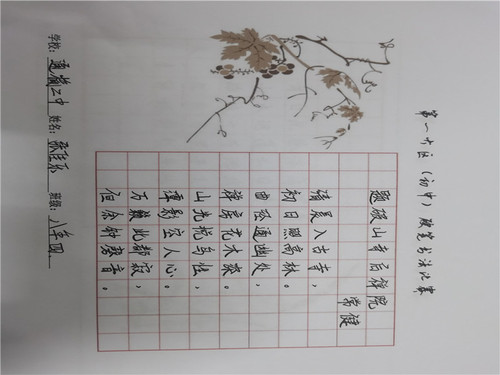 第一大区（初中）硬笔书法比赛
题破山寺后禅院
常健
清晨入古寺，
初日照高林。
曲径通幽处，
禅房花木深。
山光悦鸟性，
潭影空人心。
万籁此都寂，
但余钟磬音。
学校：通榆三中 姓名：张佳乐 班级：八年四